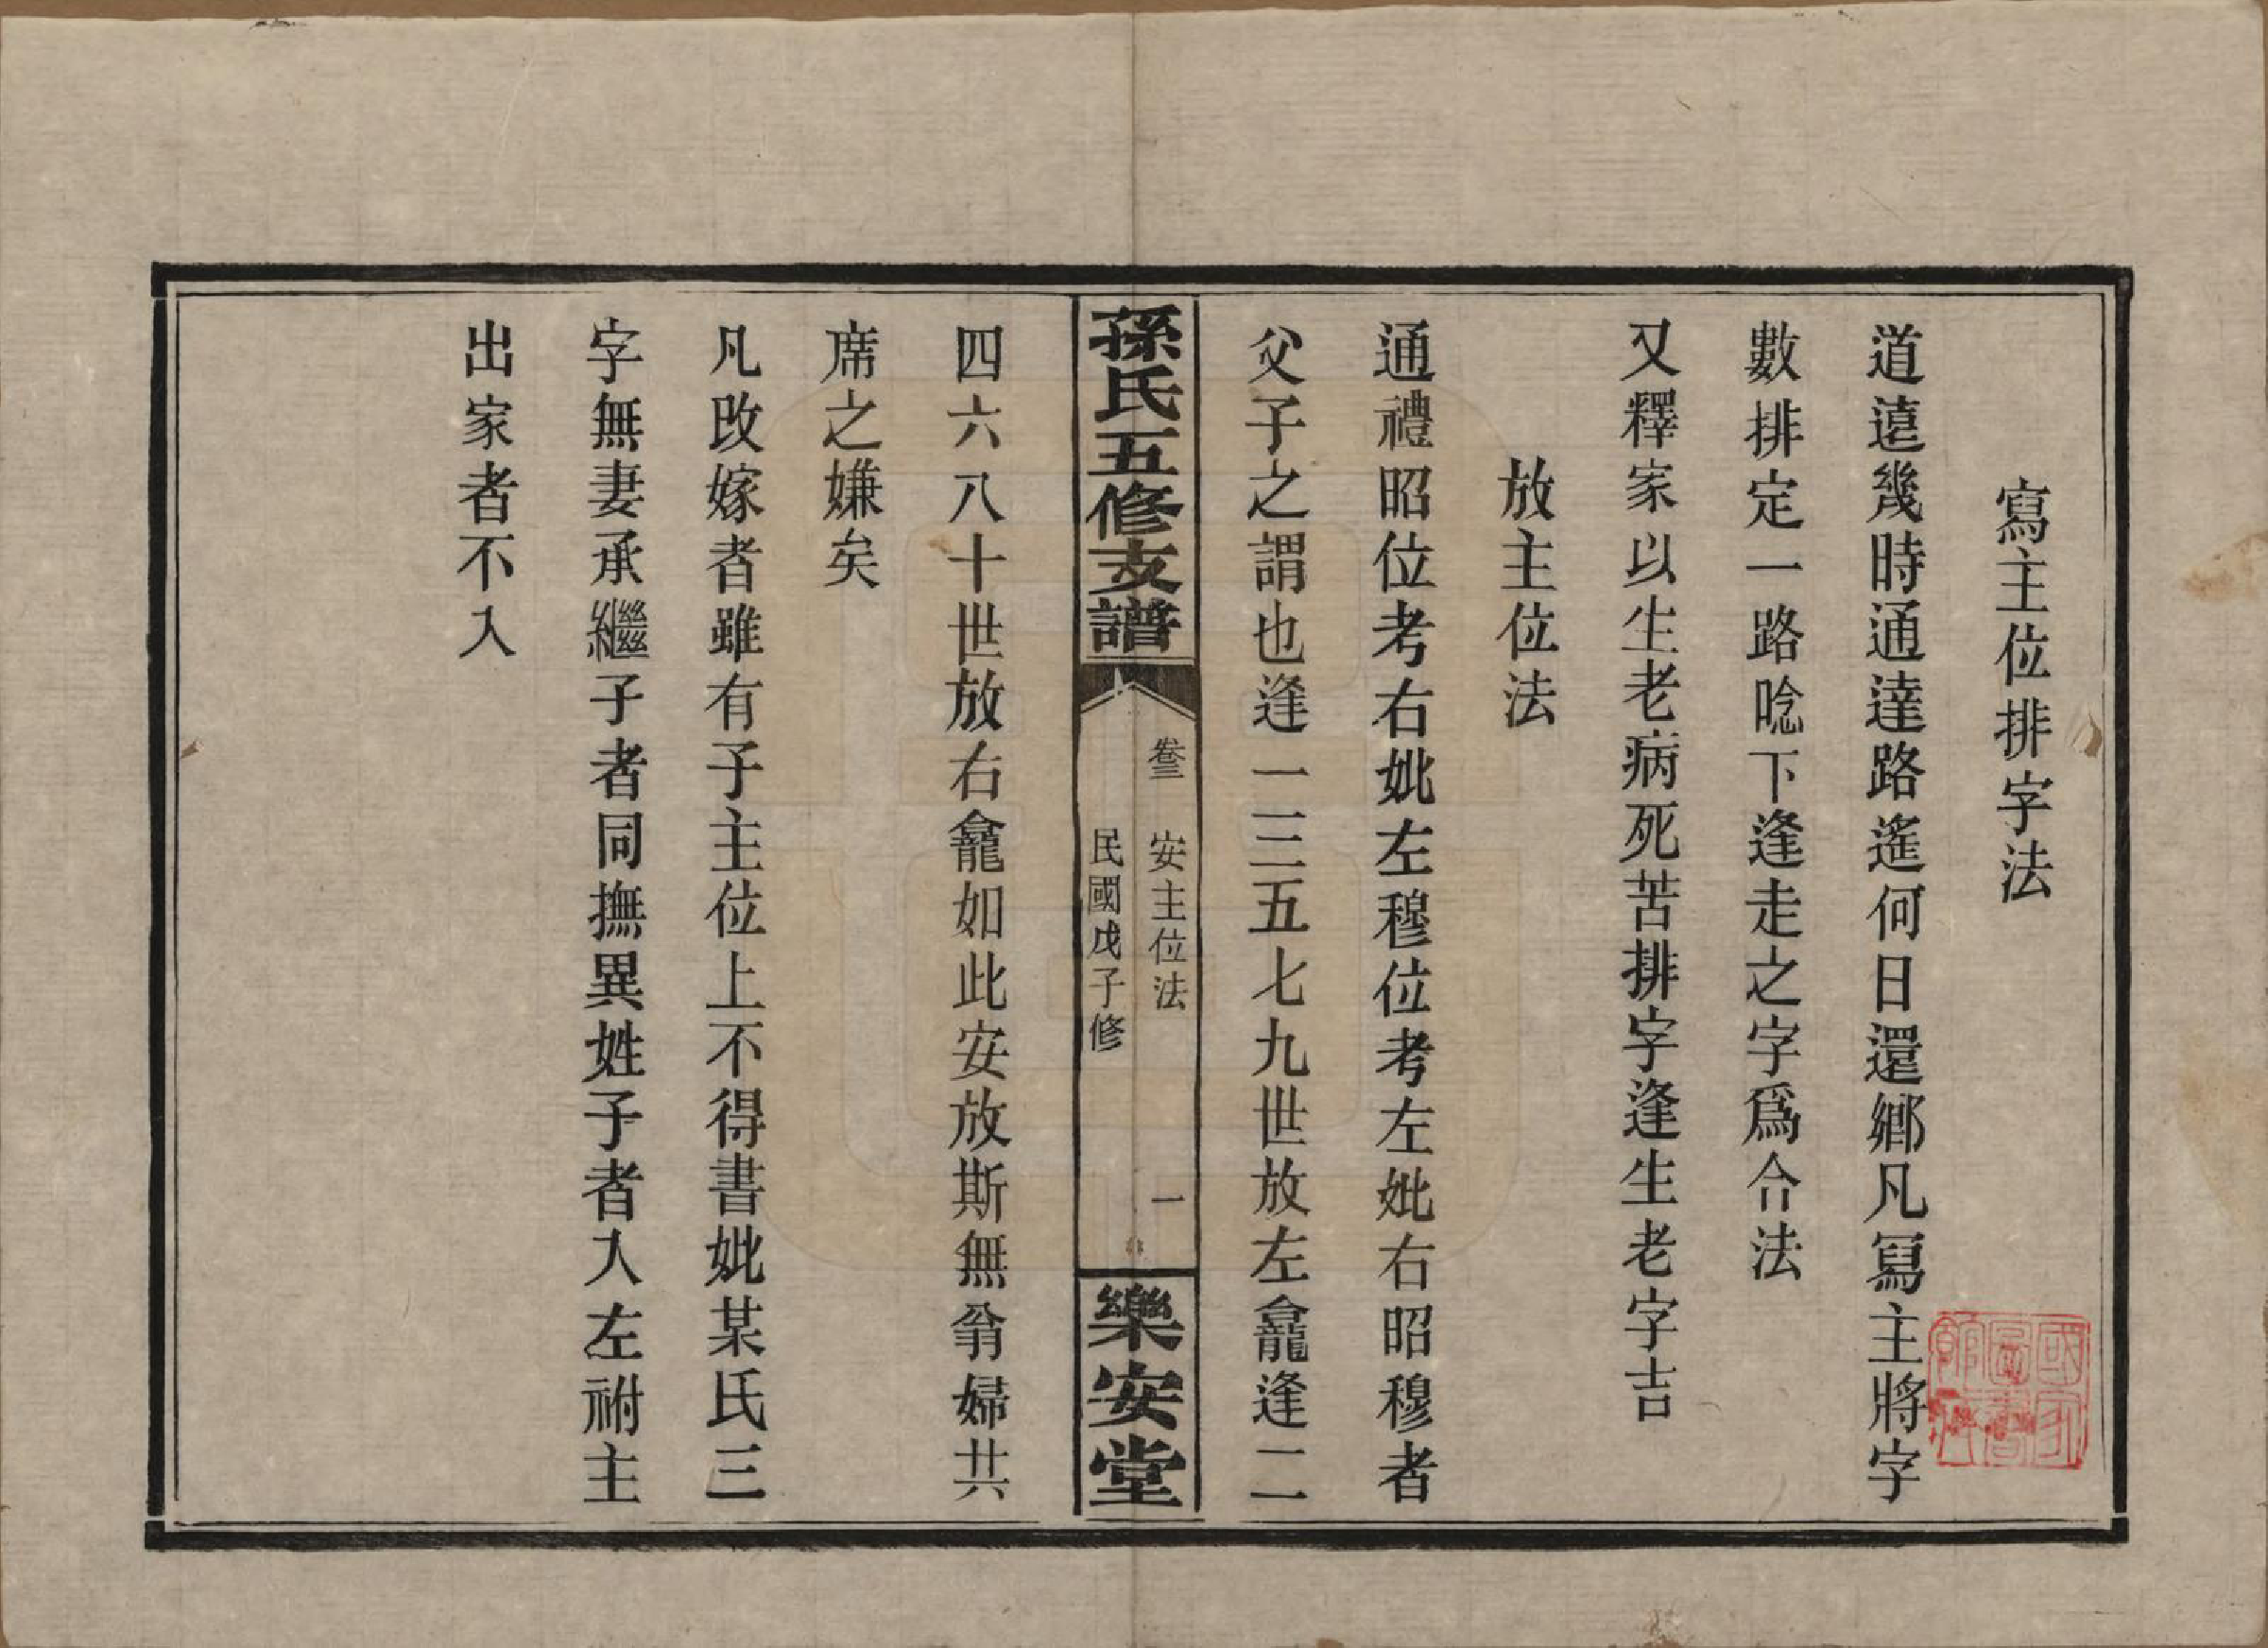 寫主位排字法
道遠幾時通達路遙何日還鄉凡寫主將字
數排定一路唸下逢走之字爲合法
又釋家以生老病死苦排字逢生老字吉
放主位法
通禮昭位考右妣左穆位考左妣右昭穆者
父子之謂也逢一三五七九世放左龕逢二
孫氏五修支譜
卷三
安主位法
一
民國戊子修
樂安堂
四六八十世放右龕如此安放斯無翁婦共
席之嫌矣
凡改嫁者雖有子主位上不得書妣某氏三
字無妻承繼子者同撫異姓子者入左祔主
出家者不入
國家圖書館藏